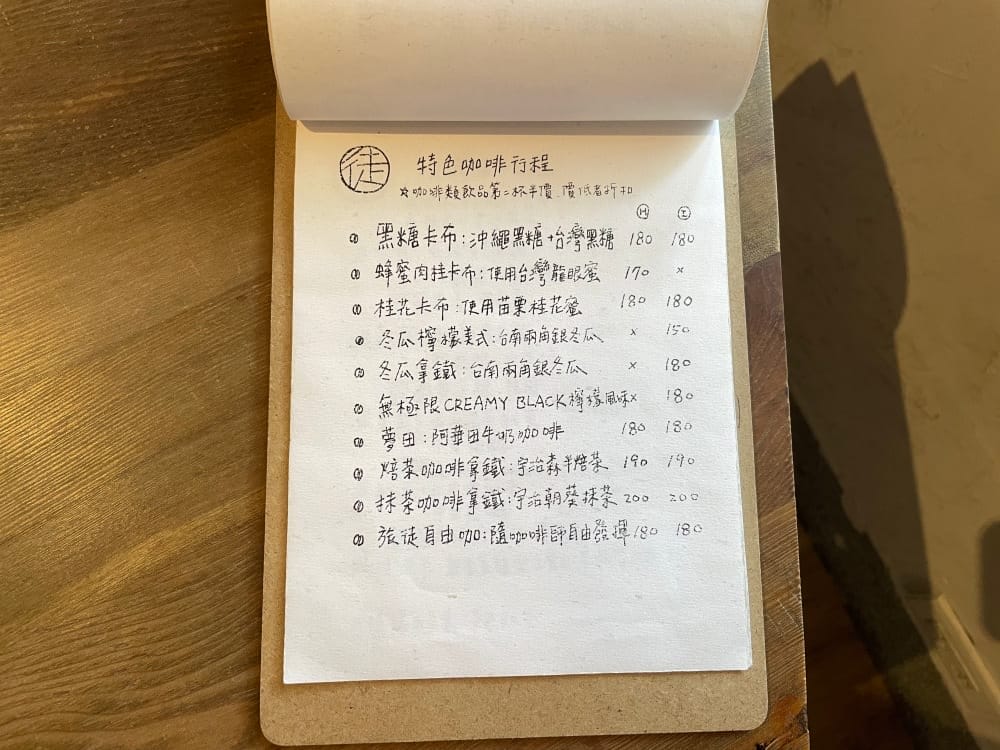 徒 特色咖啡行程
☆咖啡類飲品第二杯半價.價低者折扣
H I
黑糖卡布:沖繩黑糖+台灣黑糖 180 180
蜂蜜肉桂卡布:使用台灣龍眼蜜 170 x
桂花卡布:使用苗栗桂花蜜 180 180
冬瓜檸檬美式:台南兩角銀冬瓜 x 150
冬瓜拿鐵:台南兩角銀冬瓜 x 180
無極限CREAMY BLACK檸檬風味 x 180
夢田:阿華田牛奶咖啡 180 180
焙茶咖啡拿鐵:宇治森半焙茶 190 190
抹茶咖啡拿鐵:宇治朝葵抹茶 200 200
旅徒自由咖:隨咖啡師自由發揮 180 180